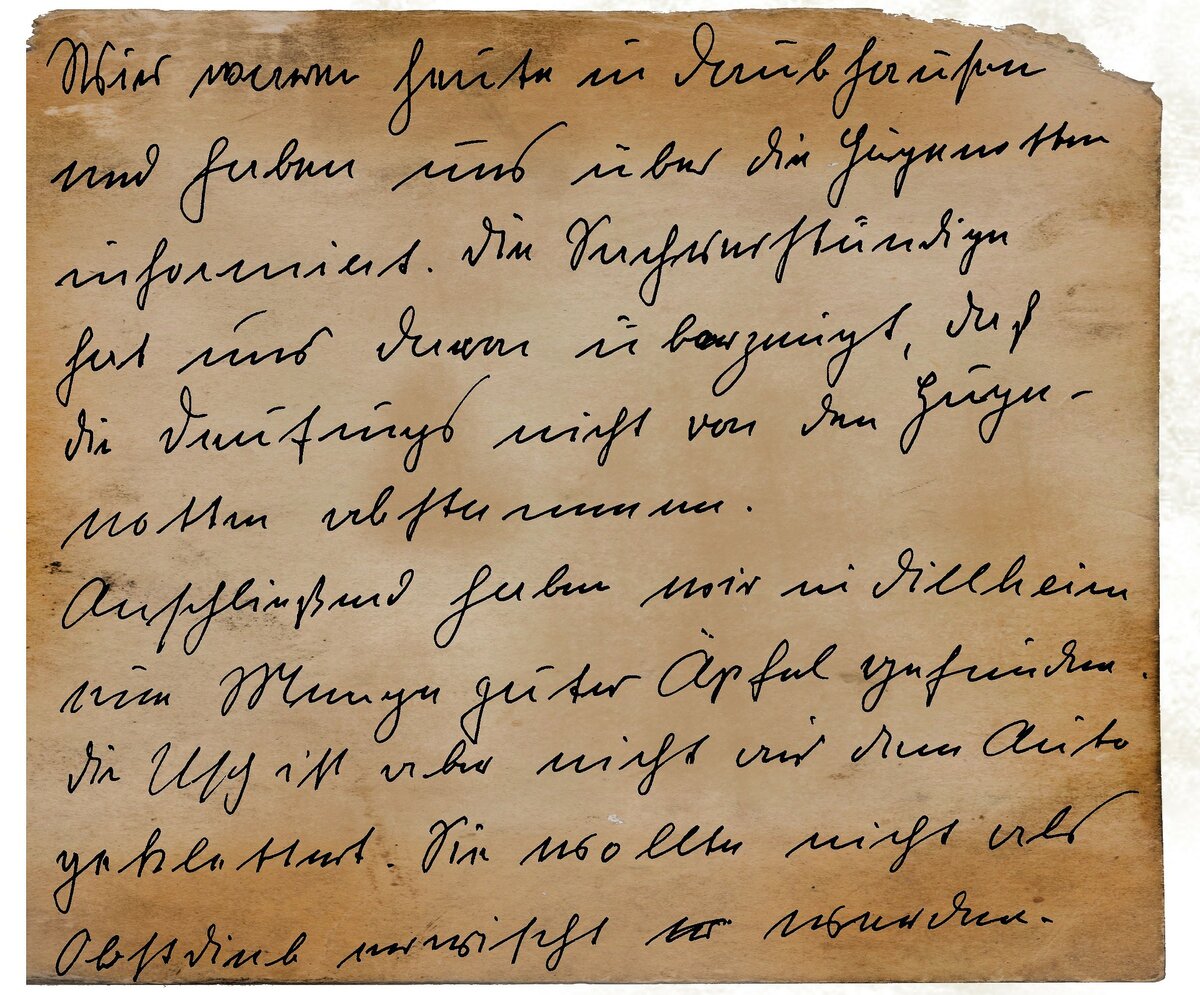 Wir waren heute in Daubhausen
und haben uns über die Hugenotten
informiert. Die Sachverständige
hat uns davon überzeugt, daß
die Draufings nicht von den Huge-
notten abstammen.
Anschließend haben wir in Dillheim
eine Menge guter Äpfel gefunden.
Die Usch ist aber nicht aus dem Auto
geklettert. Sie wollte nicht als
Obstdieb erwischt werden.